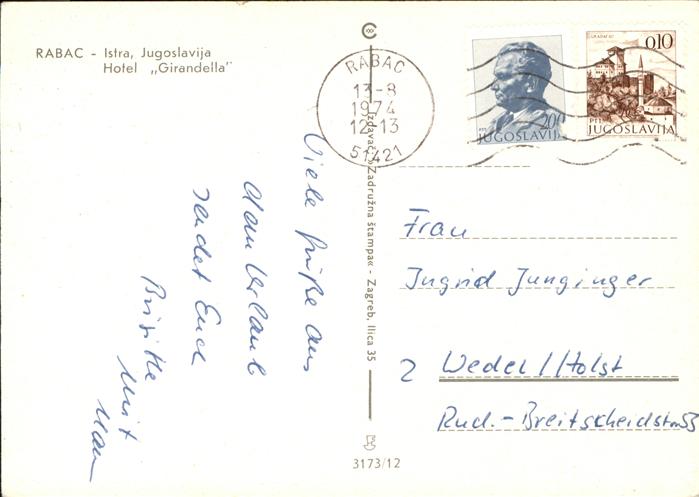 RABAC - Istra, Jugoslavija
Hotel „Girandella"
RABAC
13-8
1974
12-13
51421
200
PTT JUGOSLAVIJA
GRADAČAC
0,10
PTT
JUGOSLAVIJA
Viele Grüße aus
dem Urlaub
sendet Euch
Brigitte
mit
Izdavač: »Zadružna štampa« - Zagreb, Ilica 35
Frau
Ingrid Junginger
2 Wedel/Holst
Rud.-Breitscheidstr. 53
3173/12